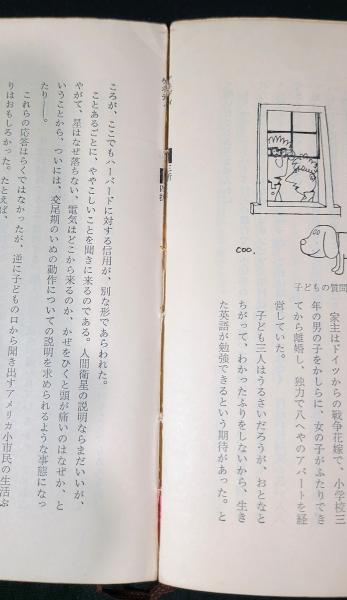 coo.
子どもの質問
家主はドイツからの戦争花嫁で、小学校三
年の男の子をかしらに、女の子がふたりでき
てから離婚し、独力で八へやのアパートを経
営していた。
子ども三人はうるさいだろうが、おとなと
ちがって、わかったふりをしないから、生き
た英語が勉強できるという期待があった。と
ころが、ここでもハーバードに対する信用が、別な形であらわれた。
ことあるごとに、ややこしいことを聞きに来るのである。人間衛星の説明ならまだいいが、
やがて、星はなぜ落ちない、電気はどこから来るのか、かぜをひくと頭が痛いのはなぜか、と
いうことから、ついには、交尾期のいぬの動作についての説明を求められるような事態になっ
たり――。
これらの応答はらくではなかったが、逆に子どもの口から聞き出すアメリカ小市民の生活ぶ
りはおもしろかった。たとえば、